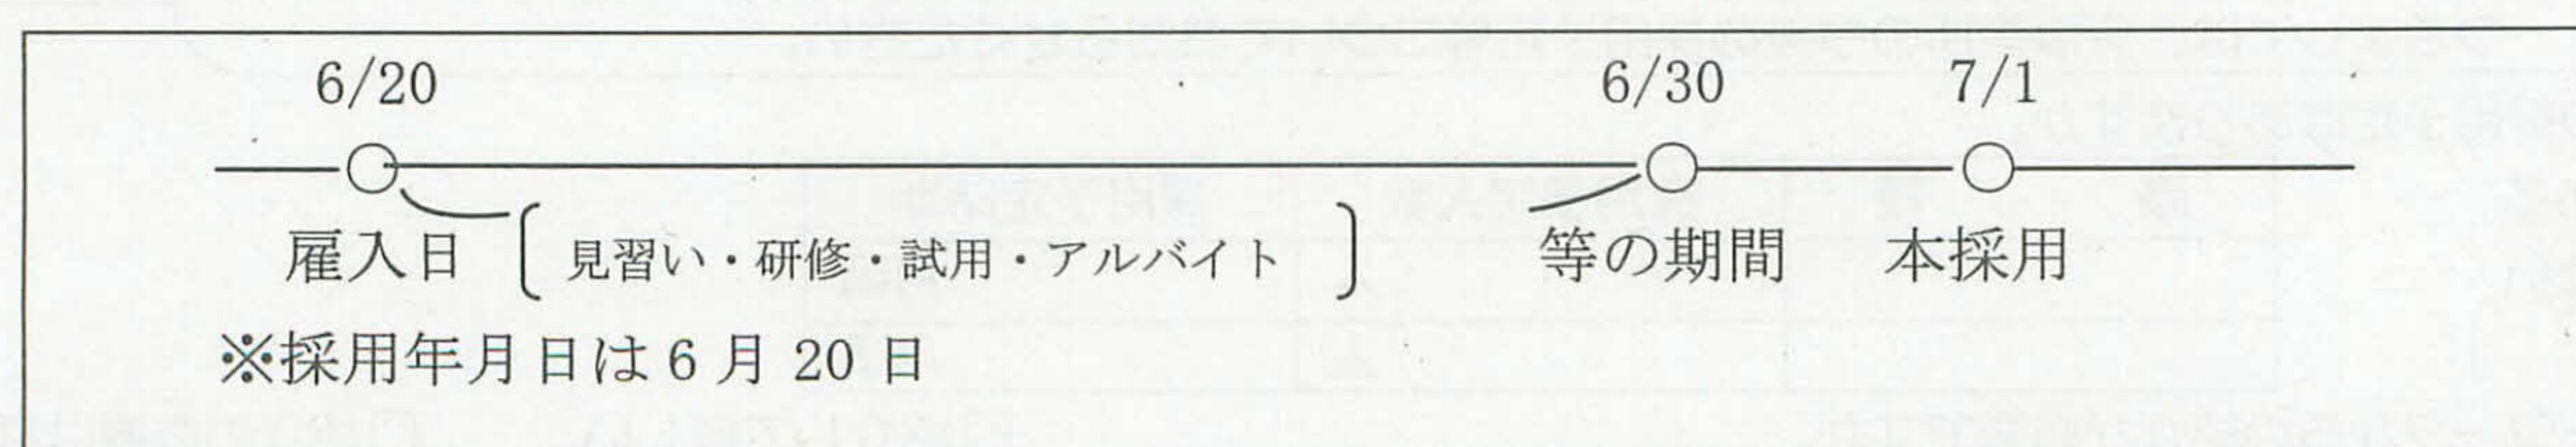 6/20 6/30 7/1
雇入日 〔見習い・研修・試用・アルバイト 〕 等の期間 本採用
※採用年月日は6月 20 日